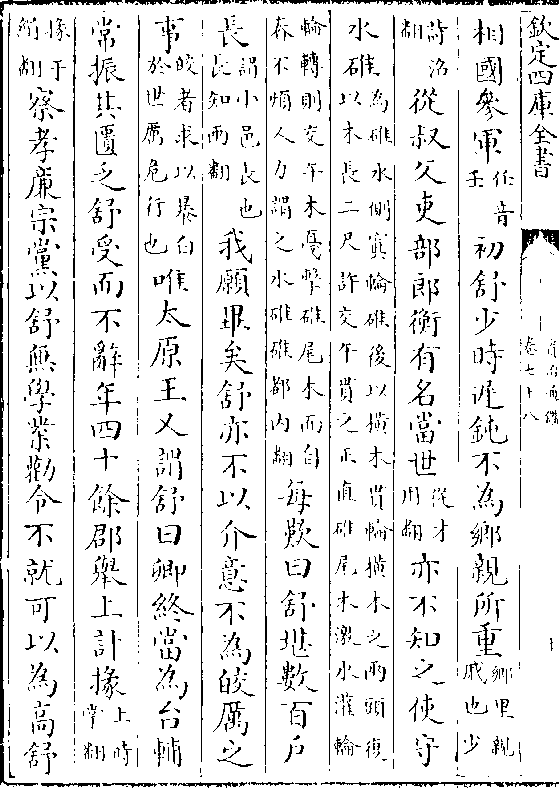 欽定四庫全書
資治通鑑
卷七十八
相國參軍任音壬初舒少時遲鈍不為鄉親所重鄉里親戚也少
詩沼翻從叔父吏部郎衡有名當世從才用翻亦不知之使守
水碓為碓水側寘輪碓後以橫木貫輪橫木之兩頭復以木長二尺許交午貫之正直碓尾木激水灌輪
輪轉則交午木戞擊碓尾木而自舂不煩人力謂之水碓碓都內翻每歎曰舒堪數百戶
長謂小邑長也長知兩翻我願畢矣舒亦不以介意不為皎厲之
事皎者求以暴白於世厲危行也唯太原王乂謂舒曰卿終當為台輔
常振其匱乏舒受而不辭年四十餘郡舉上計掾上時掌翻
掾于絹翻察孝廉宗黨以舒無學業勸令不就可以為高舒